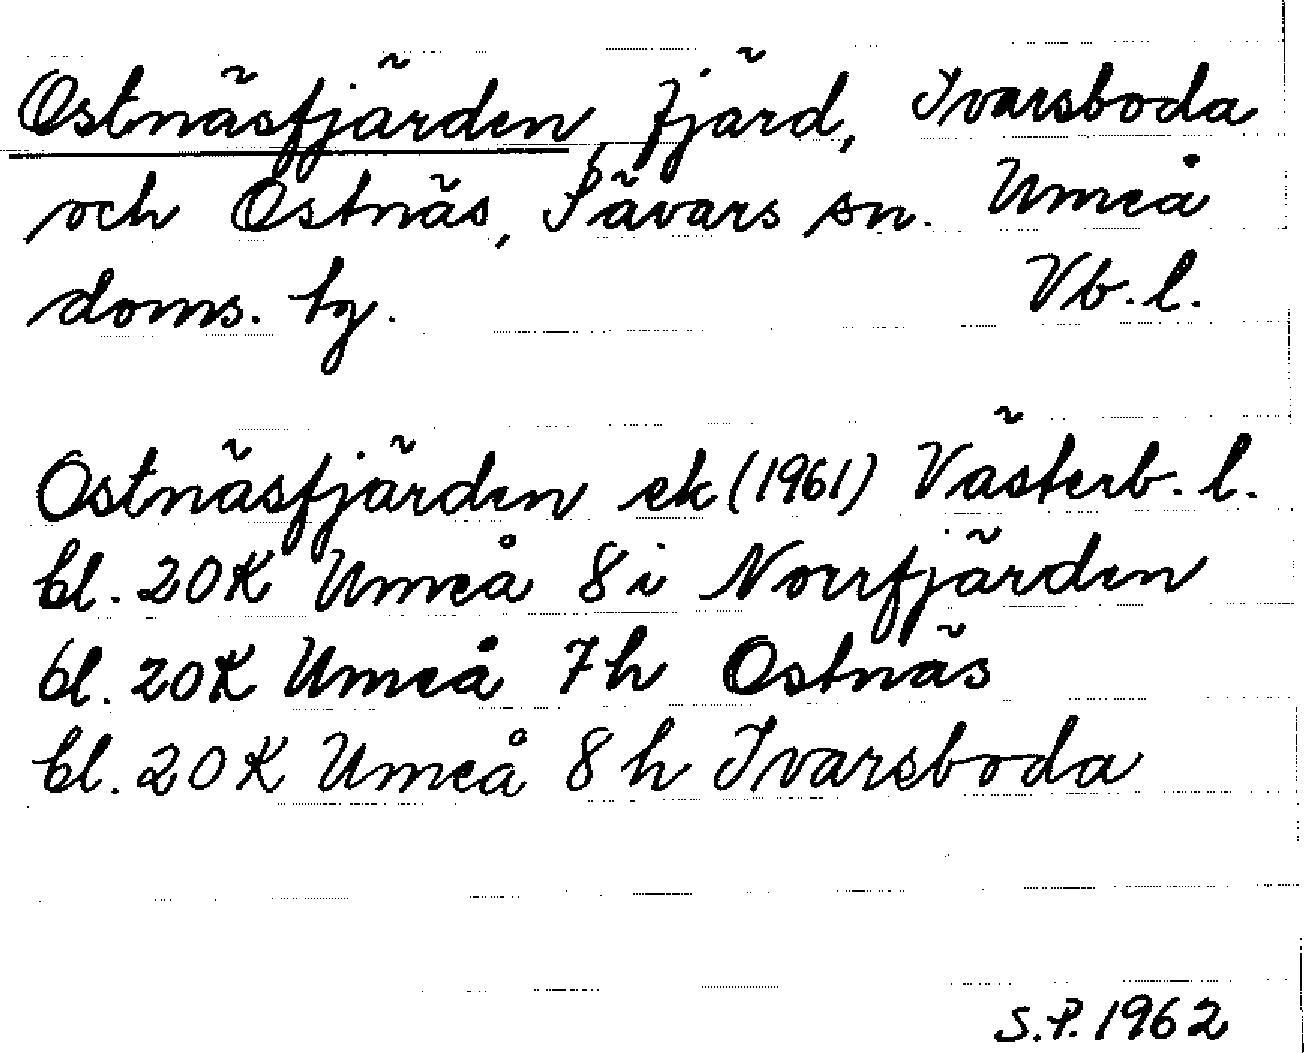 Ostnäsfjärden fjärd, Ivarsboda
och Ostnäs, Sävars sn. Umeå
doms. tg. Vb. l.
Ostnäsfjärden ek (1961) Västerb. l.
bl. 20K Umeå 8i Norrfjärden
bl. 20K Umeå 7h Ostnäs
bl. 20K Umeå 8h Ivarsboda
S.P. 1962